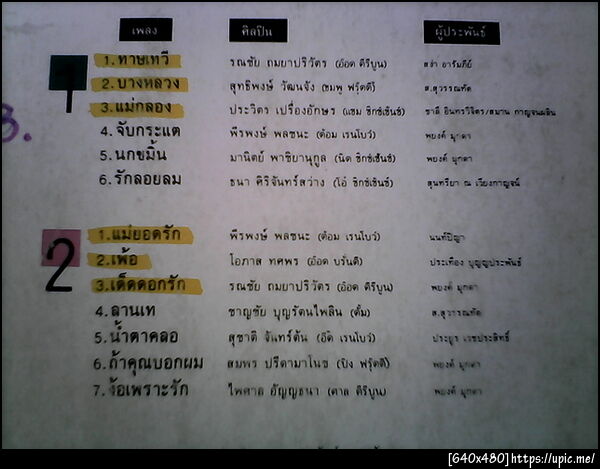 เพลง ศิลปิน ผู้ประพันธ์
1
1. ทาษเทวี รณชัย ถมยาปริวัตร (อ๊อด คีรีบูน) สง่า อารัมภีย์
2. บางหลวง สุทธิพงษ์ วัฒนจัง (ชมพู ฟรุ๊ตตี้) ส.สุวรรณทัต
3. แม่กลอง ประวิตร เปรื่องอักษร (แซม ซิกซ์เซ้นซ์) ชาลี อินทรวิจิตร/สมาน กาญจนผลิน
3.
4. จับกระแต พีรพงษ์ พลชนะ (ต้อม เรนโบว์) พยงค์ มุกดา
5. นกขมิ้น มานิตย์ พาชิยานุกูล (นิต ซิกซ์เซ้นซ์) พยงค์ มุกดา
6. รักลอยลม ธนา ศิริจันทร์สว่าง (โอ๋ ซิกซ์เซ้นซ์) สุนทรียา ณ เวียงกาญจน์
2
1. แม่ยอดรัก พีรพงษ์ พลชนะ (ต้อม เรนโบว์) นนท์ปัญา
2. เพ้อ โอภาส ทศพร (อ๊อด บรั่นดี) ประเทือง บุญญประพันธ์
3. เด็ดดอกรัก รณชัย ถมยาปริวัตร (อ๊อด คีรีบูน) พยงค์ มุกดา
4. ลานเท ชาญชัย บุญรัตนไพลิน (ตั้ม) ส.สุวรรณทัต
5. น้ำตาคลอ สุชาติ จันทร์ต้น (อ๊ด เรนโบว์) ประยูร เวชประสิทธิ์
6. ถ้าคุณบอกผม สมพร ปรีดามาโนช (ปิง ฟรุ๊ตตี้) พยงค์ มุกดา
7. ง้อเพราะรัก ไพศาล อัญญธนา (ตาล คีรีบูน) พยงค์ มุกดา
[640x480]https://upic.me/